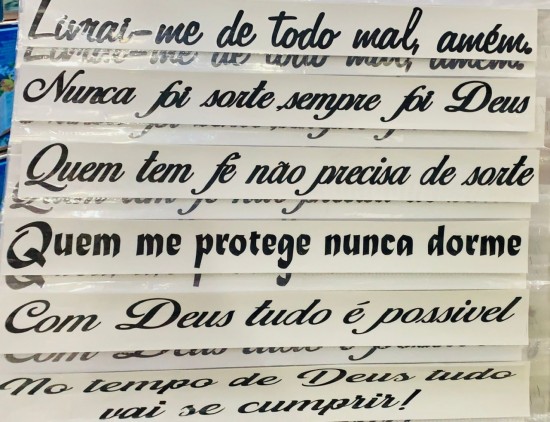 Livrai-me de todo mal, amém.
Livrai-me de todo mal, amém.
Nunca foi sorte, sempre foi Deus
Quem tem fé não precisa de sorte
Quem me protege nunca dorme
Com Deus tudo é possivel
No tempo de Deus tudo
vai se cumprir!